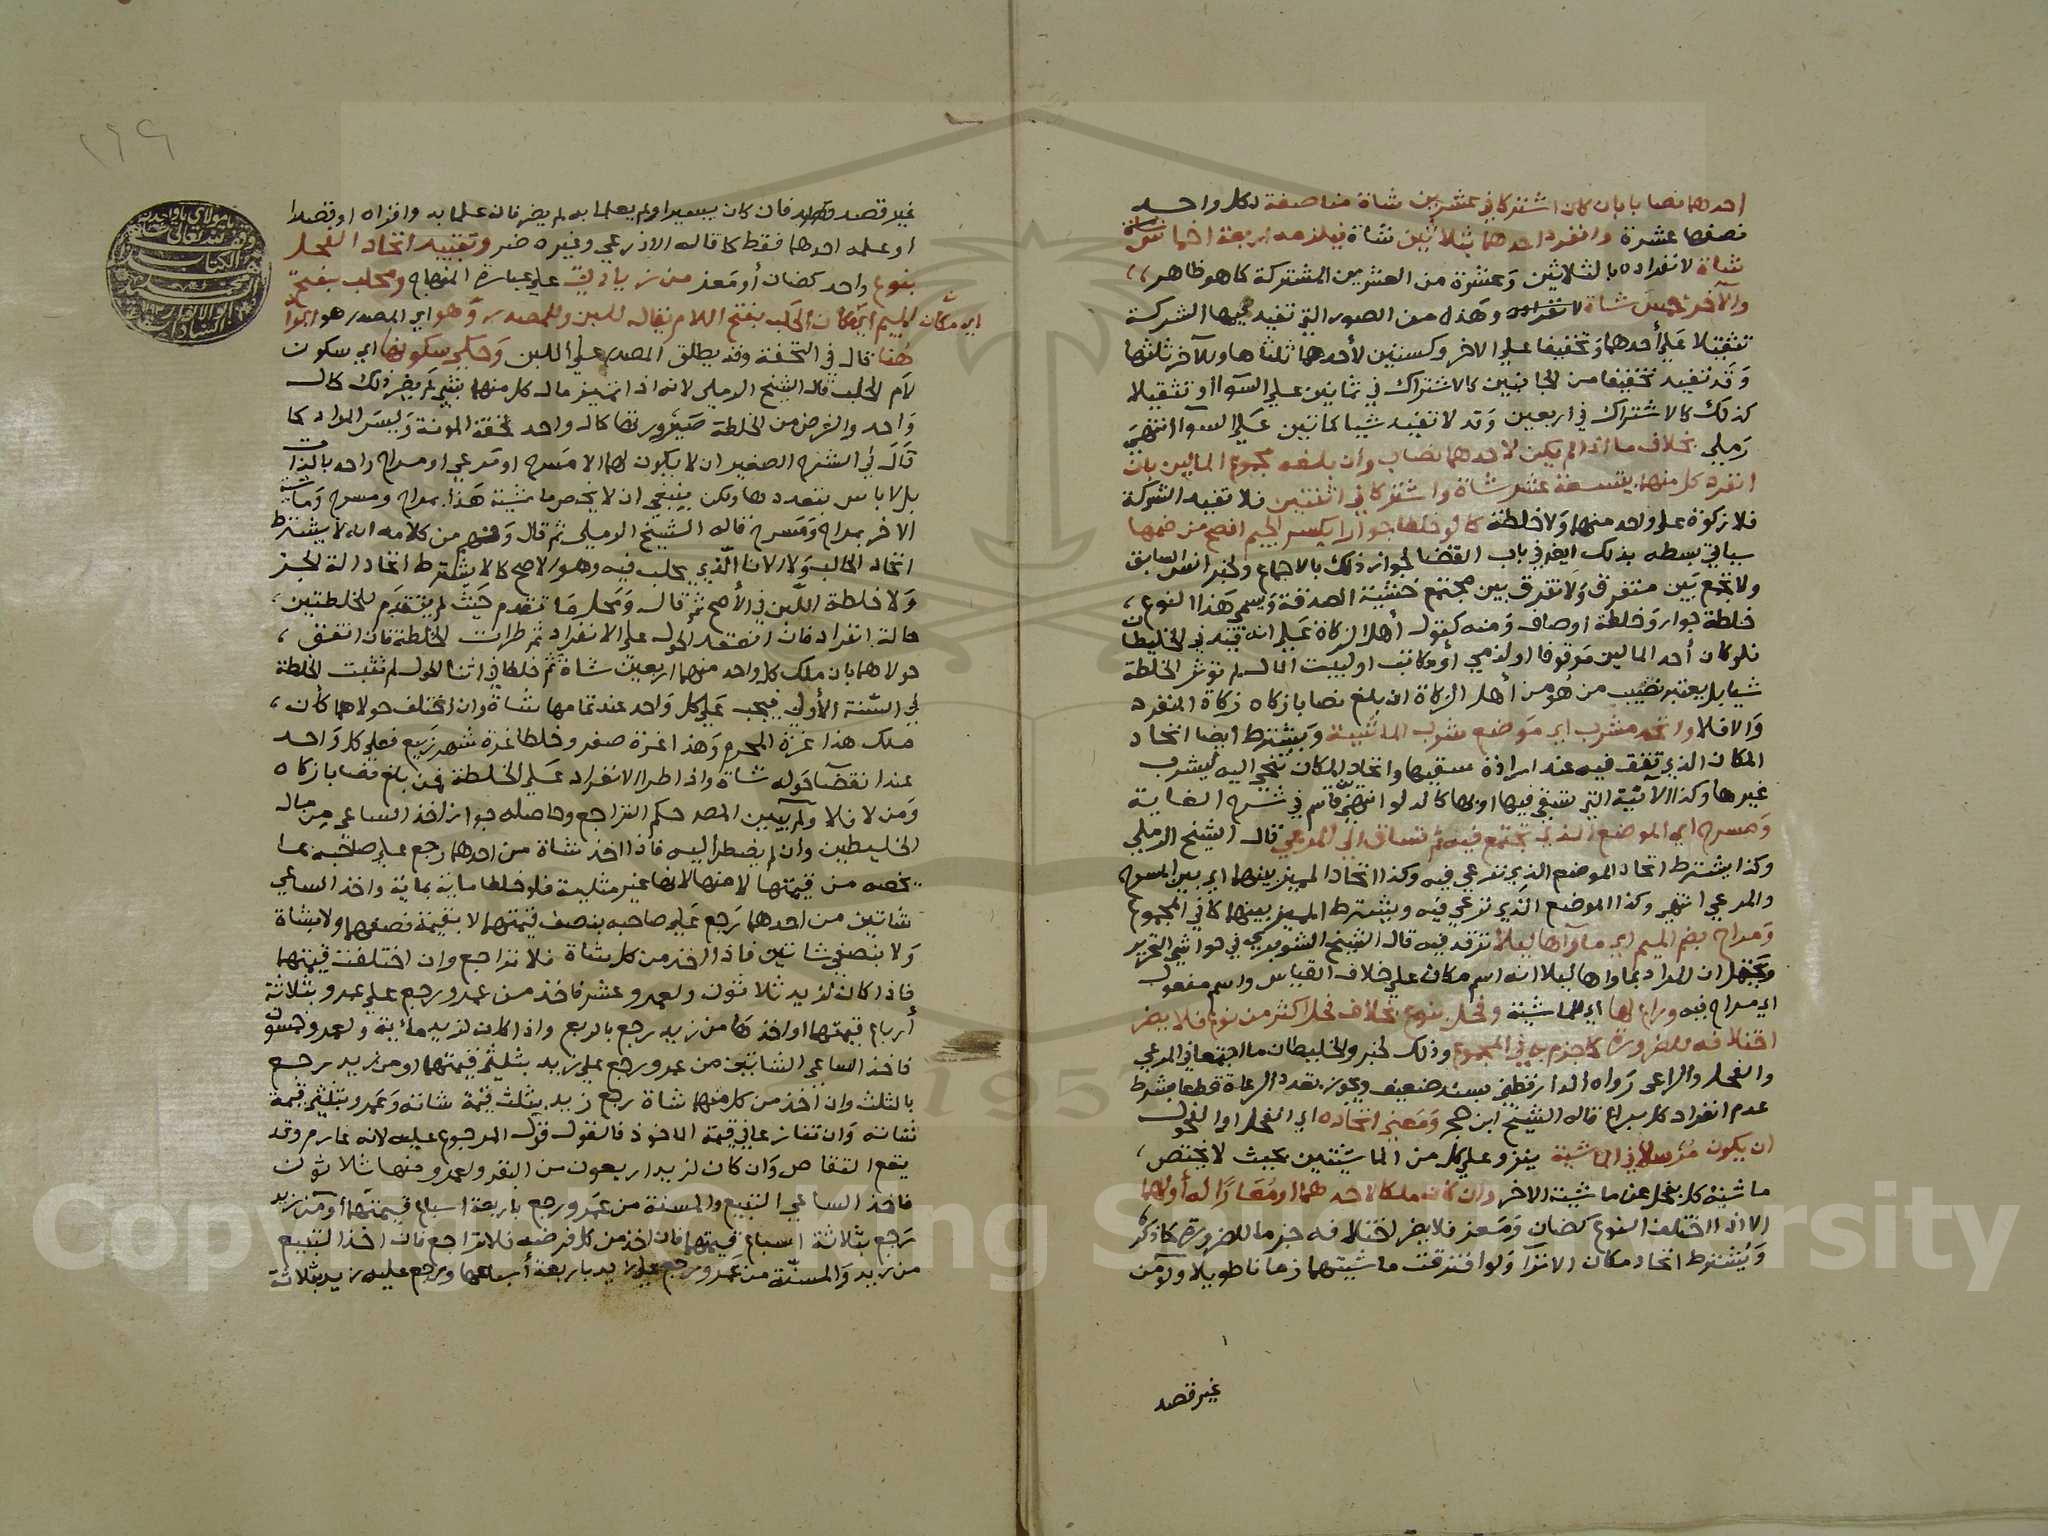 احدهما نصابا بان كان اشتركا في عشرين شاة مناصفة لكل واحد
نصفها عشرة وانفرد احدهما بثلاثين شاة فيلزمه اربعة اخماس
شاة لانفراده بالثلاثين وعشرة من العشرين المشتركة كما هو ظاهر
والآخر خمس شاة وهذه من الصور التي تفيد فيها الشركة
تثقيلا على أحدهما وتخفيفا على الاخر وكستين لأحدهما ثلثاها وللآخر ثلثها
وقد تفيد تخفيفا من الجانبين كالاشتراك في ثمانين على السوا او تثقيلا
كذلك كالاشتراك في اربعين وقد لا تفيد شيا كمائتين على السوا انتهى
رملي بخلاف ما اذا لم يكن لاحدهما نصاب وان بلغه مجموع المالين بان
انفرد كل منهما بتسعة عشر شاة واشتركا في اثنتين فلا تفيد الشركة
فلا زكوة على واحد منهما ولا خلطة كما لو خلطا جوارا بكسر الجيم افصح من ضمها
سياتي بسطه بذلك ايضا في باب القضا لجواز ذلك بالاجماع ولخبر انس السابق
ولا تجمع بين متفرق ولا تفرق بين مجتمع خشية الصدقة ويسمى هذا النوع
خلطة جوار وخلطة اوصاف ومنه كقول أهل الزكاة علم انه قيد في الخليطان
فلو كان أحد المالين موقوفا او لذمي أو مكاتب او لبيت المال لم تؤثر الخلطة
شيا بل يعتبر نصيب من هو من أهل الزكاة ان بلغ نصابا زكاه زكاة المنفرد
والا فلا واتحد مشرب اي موضع شرب الماشية ويشترط ايضا اتحاد
المكان الذي تقف فيه عند ارادة سقيها واتحاد المكان تنحى اليه ليشرب
غيرها وكذا الآنية التي تسقى فيها او بها كالدلو انتهى قاسم في شرح الغاية
ومسرح اي الموضع الذي تجتمع فيه ثم تساق الى المرعى قال الشيخ الرملي
وكذا يشترط اتحاد الموضع الذي ترعى فيه وكذا اتحاد الممر بينهما اي بين المسرح
والمرعى انتهى وكذا الموضع الذي ترعى فيه ويشترط الممر بينهما كما في المجموع
ومراح بضم الميم اي ماواها ليلا ترقد فيه قال الشيخ الشوبري في حواشي التحرير
ان المراد بماواها ليلا انه اسم مكان على خلاف القياس واسم مفعول
اي مراح فيه وراع لها اي الماشية وفحل نوع بخلاف فحل اكثر من نوع فلا يضر
اختلافه للضرورة كما جزم به في المجموع وذلك لخبر والخليطان ما اجتمعا في المرعى
والفحل والراعي رواه الدارقطني بسند ضعيف ويجوز تعدد الرعاة قطعا بشرط
عدم انفراد كل براع قاله الشيخ ابن حجر ومعنى اتحاده اي الفحل او الفحول
ان يكون مرسلا في الماشية ينزو على كل من الماشيتين بحيث لا تختص
ماشية كل بفحل عن ماشية الاخر وان كان ملكا لاحدهما او معارا له أو لهما
الا اذا اختلف النوع كضان ومعز فلا يضر اختلافه جزما للضرورة كما ذكر
ويشترط اتحاد مكان الانزا ولو افترقت ماشيتهما زمانا طويلا ولو من
غير قصد
غير قصد فان كان يسيرا ولم يعلما به لم يضر فان علما به واقراه او قصدا
او علمه احدهما فقط كما قاله الاذرعي وغيره ضر وتقييد اتحاد الفحل
بنوع واحد كضان أو معز من زيادتي على عبارة المنهاج ومحلب بفتح
الميم اي مكان الحلب بفتح اللام يقال للبن وللمصدر وهو اي المصدر هو المراد
اي مكان
هنا قال في التحفة وقد يطلق المصدر على اللبن وحكي سكونها اي سكون
لام الحلب قاله الشيخ الرملي لانه اذا تميز مال كل منهما بشي لم يضر ذلك كمال
واحد والغرض من الخلطة صيرورتها كمال واحد بخفة المونة وليس المراد كما
قال في الشرح الصغير ان لا يكون لهما الا مسرح او مرعى او مراح واحد بالذات
بل لا باس بتعددها ولكن ينبغي ان لا يختص ماشية هذا بمراح ومسرح وماشية
الاخر بمراح ومسرح قاله الشيخ الرملي ثم قال وفهم من كلامه انه لا يشترط
اتحاد الحالب ولا الانا الذي يحلب فيه وهو الاصح كما لا يشترط اتحاد الة الجز
ولا خلطة اللبن في الأصح ثم قال ومحل ما تقدم حيث لم يتقدم للخلطتين
حالة انفراد فان انعقد الحول على الانفراد ثم طرات الخلطة فان اتفق
حولاهما بان ملك كل واحد منهما اربعين شاة ثم خلطا في اثنا الحول لم تثبت الخلطة
في السنة الأولى فيجب على كل واحد عند تمامها شاة وان اختلف حولاهما كان
ملك هذا غرة المحرم وهذا غرة صفر وخلطا غرة شهر ربيع فعلى كل واحد
عند انقضا حوله شاة واذا طرا الانفراد على الخلطة فمن بلغ نصابا زكاه
ومن لا فلا ولم يبين المص حكم التراجع وحاصله جواز اخذ الساعي من مال
الخليطين وان لم يضطر اليه فاذا اخذ شاة من احدهما رجع على صاحبه بما
يخصه من قيمتها لا منها لانها غير مثلية فلو خلطا ماية بماية واخذ الساعي
شاتين من احدهما رجع على صاحبه بنصف قيمتهما لا بقيمة نصفهما ولا بشاة
ولا بنصفي شاتين فاذا اخذ من كل شاة فلا تراجع وان اختلفت قيمتهما
فاذا كان لزيد ثلاثون ولعمرو عشر فاخذ من عمرو رجع على عمرو بثلاثة
أرباع قيمتها او اخذها من زيد رجع بالربع واذا كان لزيد مائة ولعمرو خمسون
فاخذ الساعي الشاتين من عمرو رجع على زيد بثلثي قيمتهما او من زيد رجع
بالثلث وان اخذ من كل منهما شاة رجع زيد بثلث قيمة شاته وعمرو بثلثي قيمة
شاته وان تنازعا في قيمة الماخوذ فالقول قول المرجوع عليه لانه غارم وقد
يقع التقاص وان كان لزيد اربعون من البقر ولعمرو منها ثلاثون
فاخذ الساعي التبيع والمسنة من عمرو رجع باربعة اسباع قيمتهما أو من زيد
رجع بثلاثة اسباع قيمتهما فان اخذ من كل فرضه فلا تراجع فان اخذ التبيع
من زيد والمسنة من عمرو رجع على زيد باربعة أسباعها ورجع عليه زيد بثلاثة
Copyright © King Saud University